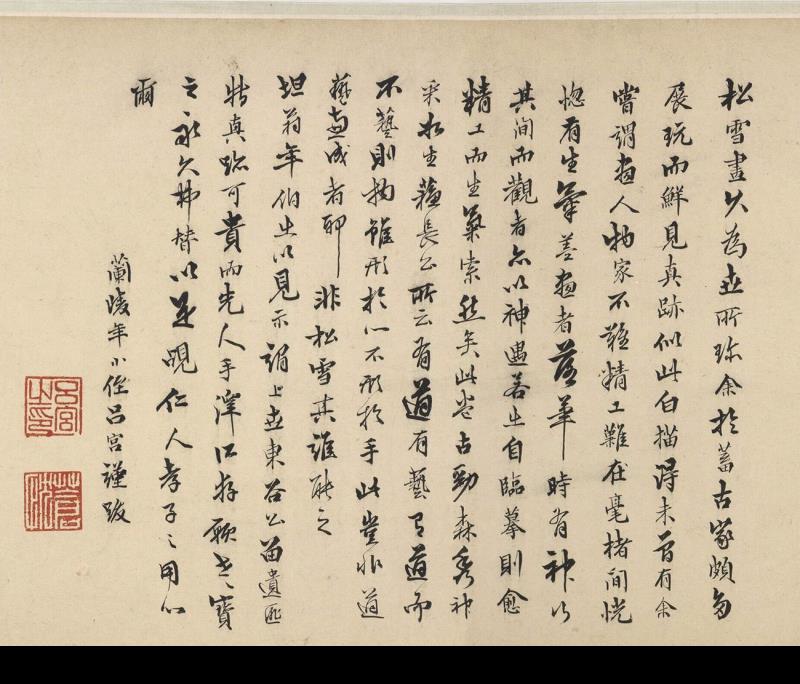 松雪畫久為世所珍余於蓄古家頗多
展玩而鮮見真跡似此白描得未曾有余
嘗謂畫人物家不難精工難在毫楮間恍
惚有生氣善畫者落筆時有神以
其間而觀者亦以神遇若止自臨摹則愈
精工而生氣索然矣此卷古勁森秀神
采如生蘇長公所云有道有藝有道而
不藝則物雖形於心不形於手此豈非道
藝兩成者耶非松雪其誰能之
坦翁年伯出以見示謂上世東谷公留遺匪
特真跡可貴而先人手澤口存願世世寶
之永久弗替以是覘仁人孝子之用心
爾
蘭陵年小侄呂宮謹跋
呂宮之印